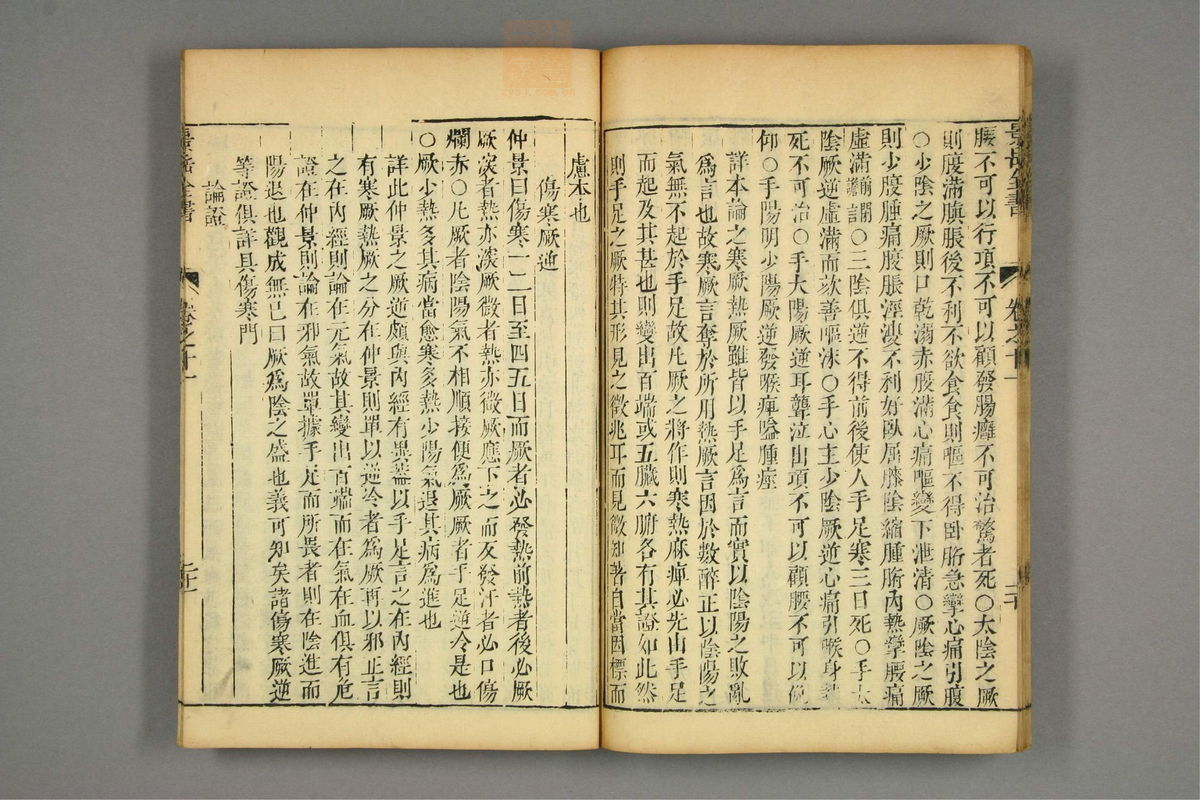 腰不可以行項不可以顧發腸癰不可治驚者死○太陰之厥
則腹滿䐜脹後不利不欲食食則嘔不得卧䯒急攣心痛引腹
○少陰之厥則口乾溺赤腹滿心痛嘔變下泄清○厥陰之厥
則少腹腫痛腹脹涇溲不利好臥屈膝陰縮腫䯒內熱攣腰痛
虛滿前閉譫言○三陰俱逆不得前後使人手足寒三日死○手太
陰厥逆虛滿而欬善嘔沫○手心主少陰厥逆心痛引喉身熱
死不可治○手太陽厥逆耳聾泣出項不可以顧腰不可以俛
仰○手陽明少陽厥逆發喉痺嗌腫痓
詳本論之寒厥熱厥雖皆以手足爲言而實以陰陽之敗亂
爲言也故寒厥言奪於所用熱厥言因於數醉正以陰陽之
氣無不起於手足故凡厥之將作則寒熱麻痺必先由手足
而起及其甚也則變出百端或五臟六腑各有其證如此然
則手足之厥特其形見之徵兆耳而見微知著自當因標而
景岳全書 卷之十一
慮本也
傷寒厥逆
仲景曰傷寒一二日至四五日而厥者必發熱前熱者後必厥
厥深者熱亦深厥微者熱亦微厥應下之而反發汗者必口傷
爛赤○凡厥者陰陽氣不相順接便爲厥厥者手足逆冷是也
○厥少熱多其病當愈寒多熱少陽氣退其病爲進也
詳此仲景之厥逆頗與內經有異蓋以手足言之在內經則
有寒厥熱厥之分在仲景則單以逆冷者爲厥再以邪正言
之在內經則論在元氣故其變出百端而在氣在血俱有危
證在仲景則論在邪氣故單據手足而所畏者則在陰進而
陽退也觀成無已曰厥爲陰之盛也義可知矣諸傷寒厥逆
等證俱詳具傷寒門
論證
景岳全書 卷之十一